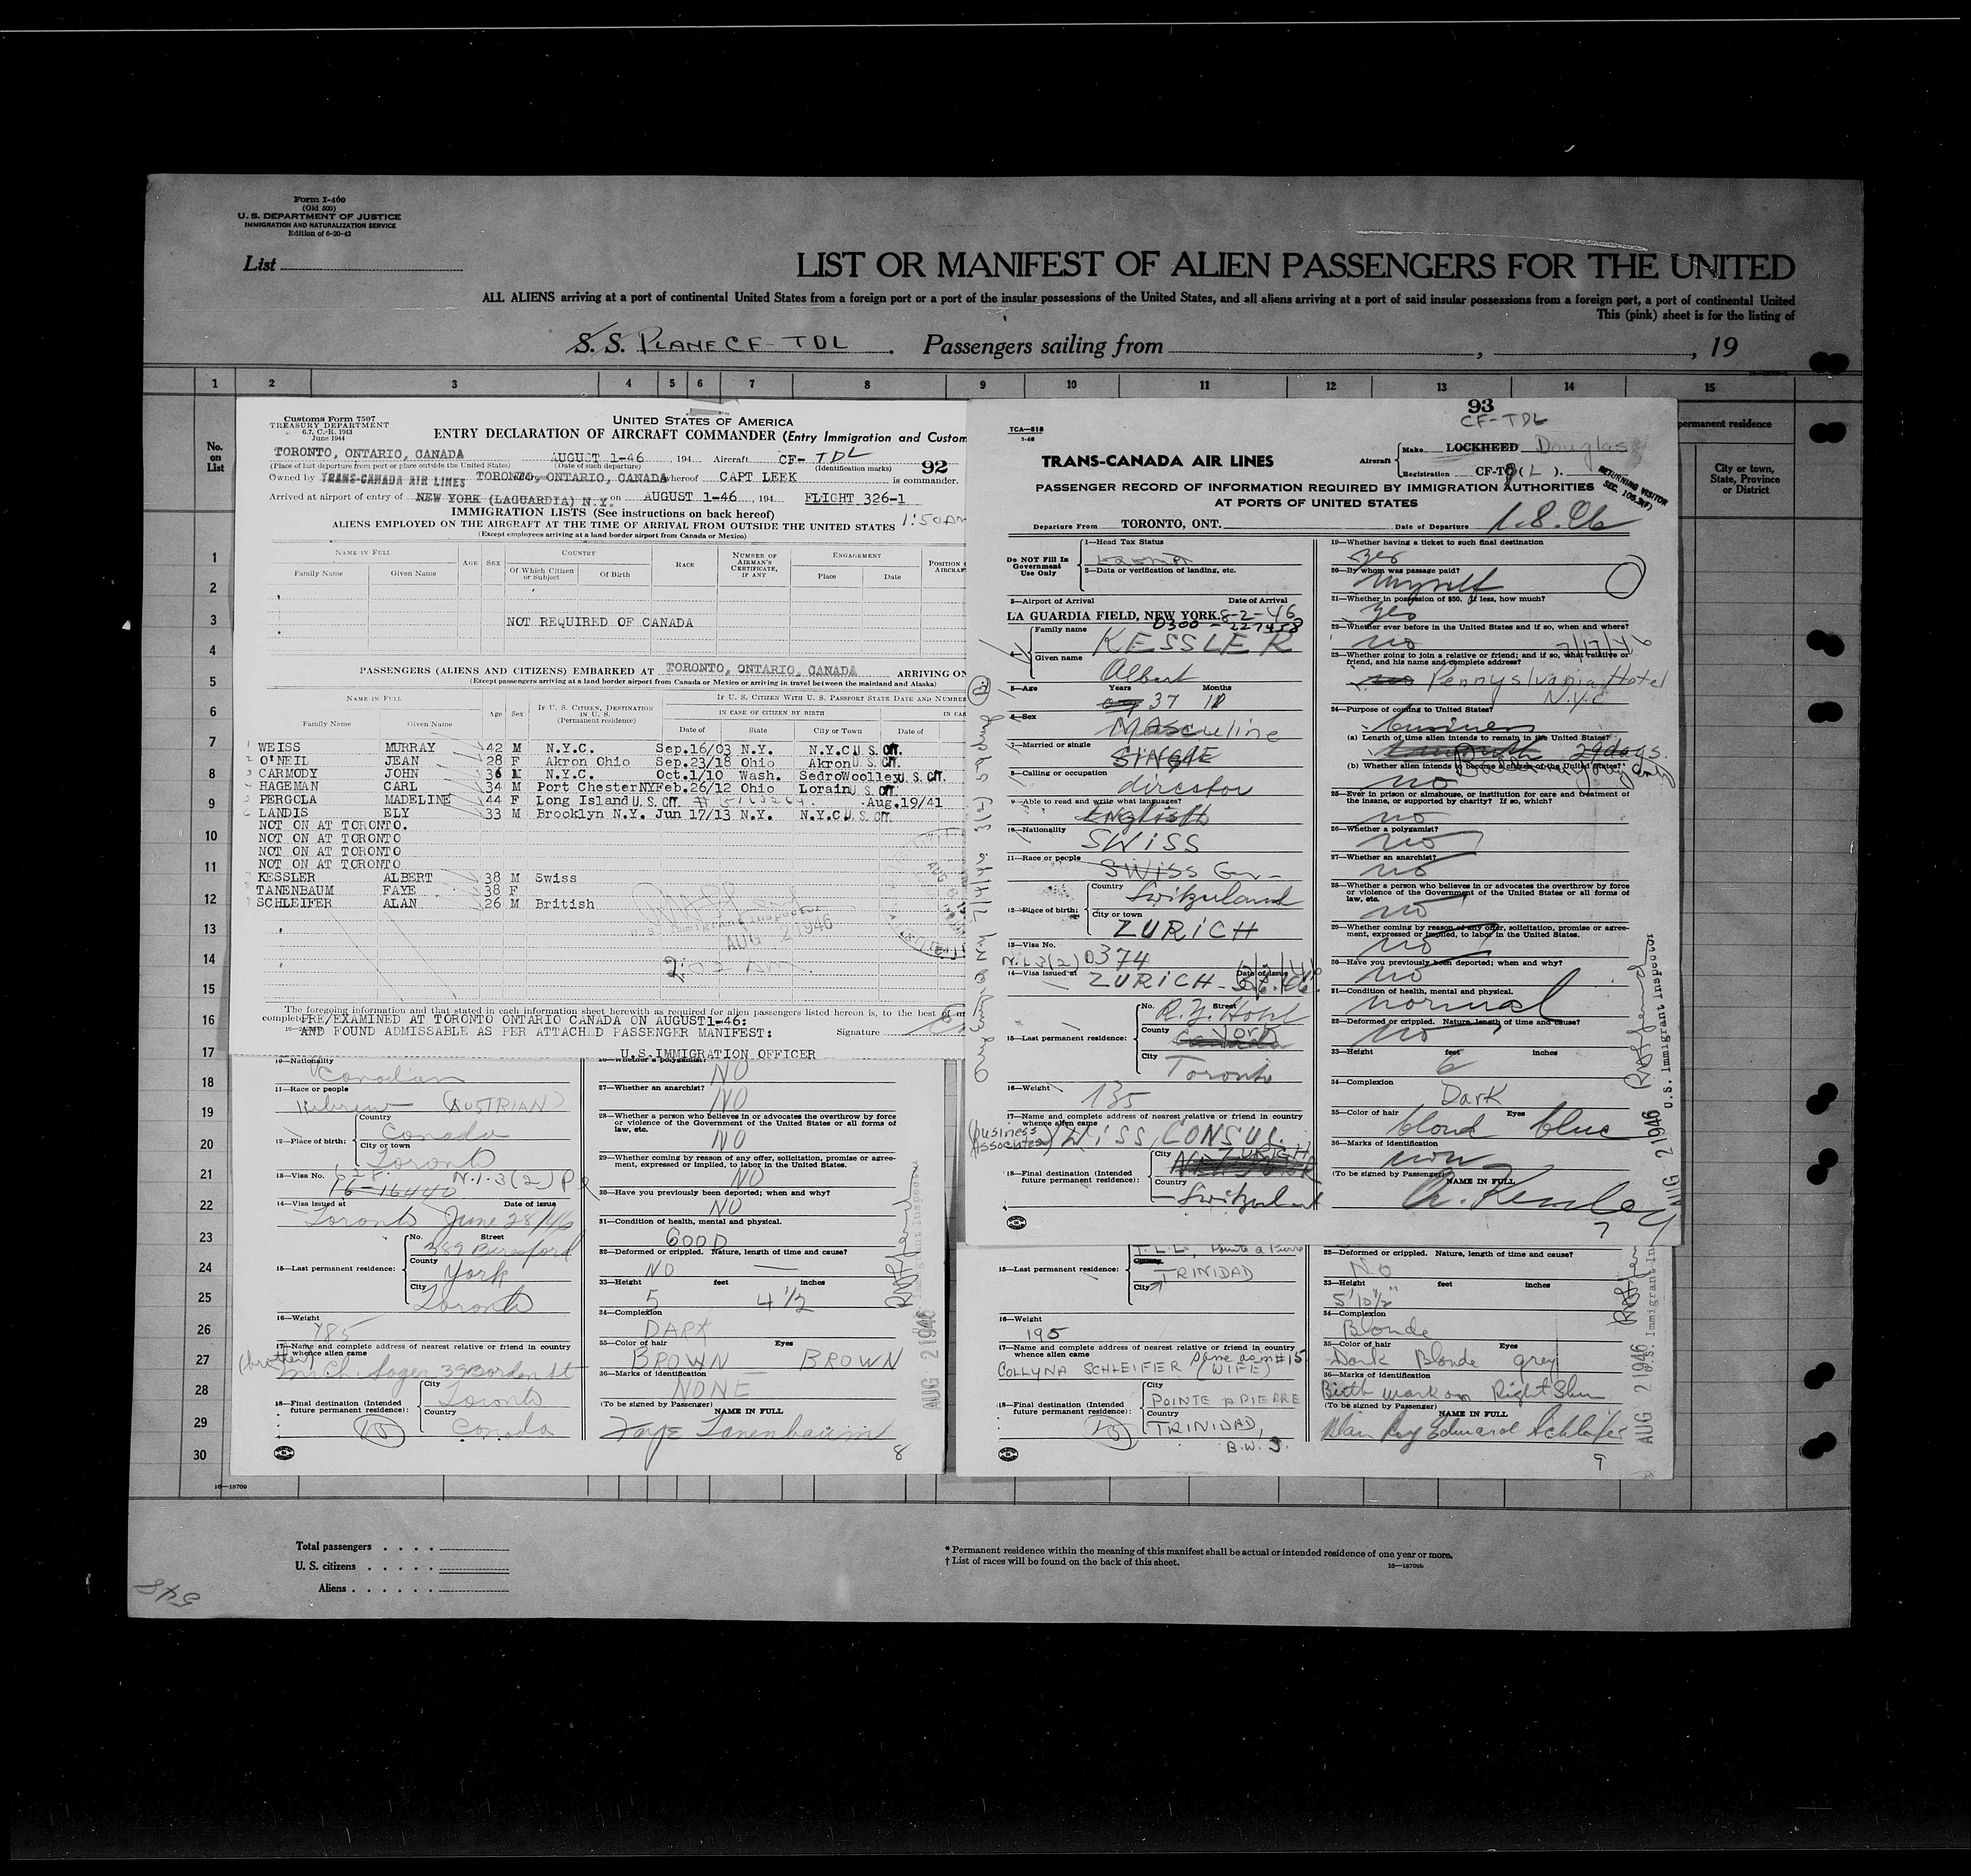 Form I-460
(Old 500)
U. S. DEPARTMENT OF JUSTICE
IMMIGRATION AND NATURALIZATION SERVICE
Edition of 6-20-42
List
LIST OR MANIFEST OF ALIEN PASSENGERS FOR THE UNITED
ALL ALIENS arriving at a port of continental United States from a foreign port or a port of the insular possessions of the United States, and all aliens arriving at a port of said insular possessions from a foreign port, a port of continental United
This (pink) sheet is for the listing of
S. S. PLANE CF-TDL . Passengers sailing from , , 19
1 2 3 4 5 6 7 8 9 10 11 12 13 14 15
No. on List
permanent residence
City or town, State, Province or District
1
2
3
4
5
6
7
8
9
10
11
12
13
14
15
16
17
18
19
20
21
22
23
24
25
26
27
28
29
30
Customs Form 7507
TREASURY DEPARTMENT
6.7, C. R. 1943
June 1944
UNITED STATES OF AMERICA
ENTRY DECLARATION OF AIRCRAFT COMMANDER (Entry Immigration and Custom
TORONTO, ONTARIO, CANADA AUGUST 1-46 , 194 Aircraft CF- TDL 92
(Place of last departure from port or place outside the United States) (Date of such departure) (Identification marks)
Owned by TRANS-CANADA AIR LINES TORONTO, ONTARIO, CANADA whereof CAPT LEEK is commander.
Arrived at airport of entry of NEW YORK (LAGUARDIA) N.Y. on AUGUST 1-46 , 194 FLIGHT 326-1
IMMIGRATION LISTS (See instructions on back hereof) 1:50 AM
ALIENS EMPLOYED ON THE AIRCRAFT AT THE TIME OF ARRIVAL FROM OUTSIDE THE UNITED STATES
(Except employees arriving at a land border airport from Canada or Mexico)
NAME IN FULL AGE SEX COUNTRY RACE NUMBER OF AIRMAN'S CERTIFICATE, IF ANY ENGAGEMENT POSITION
Family Name Given Name Of Which Citizen or Subject Of Birth Place Date AIRCRAF
NOT REQUIRED OF CANADA
PASSENGERS (ALIENS AND CITIZENS) EMBARKED AT TORONTO, ONTARIO, CANADA ARRIVING ON
(Except passengers arriving at a land border airport from Canada or Mexico or arriving in travel between the mainland and Alaska)
NAME IN FULL Age Sex IF U. S. CITIZEN, DESTINATION IN U. S. (Permanent residence) IF U. S. CITIZEN WITH U. S. PASSPORT STATE DATE AND NUMBER
IN CASE OF CITIZEN BY BIRTH IN CAS
Family Name Given Name Date of State City or Town Date of
WEISS MURRAY 42 M N.Y.C. Sep.16/03 N.Y. N.Y.C U.S. CIT.
O'NEIL JEAN 28 F Akron Ohio Sep.23/18 Ohio Akron U.S. CIT.
CARMODY JOHN 36 M N.Y.C. Oct.1/10 Wash. SedroWoolley U.S. CIT.
HAGEMAN CARL 34 M Port ChesterNY Feb.26/12 Ohio Lorain U.S. CIT.
PERGOLA MADELINE 44 F Long Island U.S. CIT. Aug.19/41
LANDIS ELY 33 M Brooklyn N.Y. Jun 17/13 N.Y. N.Y.C U.S. CIT.
NOT ON AT TORONTO.
NOT ON AT TORONTO
NOT ON AT TORONTO
NOT ON AT TORONTO
KESSLER ALBERT 38 M Swiss
TANENBAUM FAYE 38 F
SCHLEIFER ALAN 26 M British
U. S. Immigrant Inspector
AUG 2 1946
2:02 AM
The foregoing information and that stated in each information sheet herewith as required for alien passengers listed hereon is, to the best of m
complete PRE/EXAMINED AT TORONTO ONTARIO CANADA ON AUGUST1-46:
AND FOUND ADMISSABLE AS PER ATTACHED PASSENGER MANIFEST: Signature
U.S.IMMIGRATION OFFICER
10—Nationality
Canadian
11—Race or people
Hebrew (AUSTRIAN)
12—Place of birth:
Country
Canada
City or town
Toronto
13—Visa No. N.I. 3(2)
16-16440
14—Visa issued at Date of issue
Toronto June 28/46
15—Last permanent residence:
No. Street
389 Beresford
County
York
City
Toronto
16—Weight
185
17—Name and complete address of nearest relative or friend in country whence alien came
(brother)
18—Final destination (Intended future permanent residence):
City
Toronto
Country
Canada
26—Whether a polygamist?
NO
27—Whether an anarchist?
NO
28—Whether a person who believes in or advocates the overthrow by force or violence of the Government of the United States or all forms of law, etc.
NO
29—Whether coming by reason of any offer, solicitation, promise or agreement, expressed or implied, to labor in the United States.
NO
30—Have you previously been deported; when and why?
NO
31—Condition of health, mental and physical.
GOOD
32—Deformed or crippled. Nature, length of time and cause?
NO
33—Height feet inches
5 4 1/2
34—Complexion
DARK
35—Color of hair Eyes
BROWN BROWN
36—Marks of identification
NONE
(To be signed by Passenger)
NAME IN FULL
Faye Tanenbaum
8
AUG 2 1946
U.S. Immigrant Inspector
93
CF-TDL
TCA—518
5-46
TRANS-CANADA AIR LINES
Aircraft
Make LOCKHEED Douglas
Registration CF-T (L).
RETURNING VISITOR
PASSENGER RECORD OF INFORMATION REQUIRED BY IMMIGRATION AUTHORITIES
AT PORTS OF UNITED STATES
Departure From TORONTO, ONT. Date of Departure 1.8.46
Do NOT Fill In Government Use Only
1—Head Tax Status
2—Data or verification of landing, etc.
3—Airport of Arrival Date of Arrival
LA GUARDIA FIELD, NEW YORK. 8-2-46
0300 - 227458
Family name
KESSLER
Given name
Albert
5—Age Years Months
37 11
6—Sex
Masculine
7—Married or single
SINGLE
8—Calling or occupation
director
9—Able to read and write what languages?
English
10—Nationality
SWISS
11—Race or people
SWISS
12—Place of birth:
Country
Switzerland
City or town
ZURICH
13—Visa No.
N.I. 3(2) 0374
14—Visa issued at Date of issue
ZURICH
15—Last permanent residence:
No. Street
R.Y. Hotel
County
York
Canada
City
Toronto
16—Weight
135
17—Name and complete address of nearest relative or friend in country whence alien came
(business associates) SWISS CONSUL.
18—Final destination (Intended future permanent residence):
City
ZURICH
NEW YORK
Country
Switzerland
19—Whether having a ticket to such final destination
yes
20—By whom was passage paid?
myself
21—Whether in possession of $50. If less, how much?
yes
22—Whether ever before in the United States and if so, when and where?
no
23—Whether going to join a relative or friend; and if so, what relative or friend, and his name and complete address?
no Pennsylvania Hotel
N.Y.C
24—Purpose of coming to United States?
business
(a) Length of time alien intends to remain in the United States?
29 days.
(b) Whether alien intends to become a citizen of the United States?
no
25—Ever in prison or almshouse, or institution for care and treatment of the insane, or supported by charity? If so, which?
no
26—Whether a polygamist?
no
27—Whether an anarchist?
no
28—Whether a person who believes in or advocates the overthrow by force or violence of the Government of the United States or all forms of law, etc.
no
29—Whether coming by reason of any offer, solicitation, promise or agreement, expressed or implied, to labor in the United States.
no
30—Have you previously been deported; when and why?
no
31—Condition of health, mental and physical.
normal
32—Deformed or crippled. Nature, length of time and cause?
no
33—Height feet inches
6
34—Complexion
Dark
35—Color of hair Eyes
blond blue
36—Marks of identification
(To be signed by Passenger)
NAME IN FULL
7
AUG 2 1946
U.S. Immigrant Inspector
T.L.L., Pointe a Pierre
15—Last permanent residence:
TRINIDAD
City
16—Weight
195
17—Name and complete address of nearest relative or friend in country whence alien came
Same as in #15
COLLYNA SCHLEIFER (WIFE)
18—Final destination (Intended future permanent residence):
City
POINTE a PIERRE
Country
TRINIDAD,
B.W.I.
32—Deformed or crippled. Nature, length of time and cause?
NO
33—Height feet inches
5' 10 1/2"
34—Complexion
Blonde
35—Color of hair Eyes
Dark Blonde grey
36—Marks of identification
Birth mark on Right Shin
(To be signed by Passenger)
NAME IN FULL
Alan Roy Edward Schleifer
9
AUG 2 1946
U.S. Immigrant In
16—18709
Total passengers
U. S. citizens
Aliens
* Permanent residence within the meaning of this manifest shall be actual or intended residence of one year or more.
† List of races will be found on the back of this sheet.
16—18709b
548